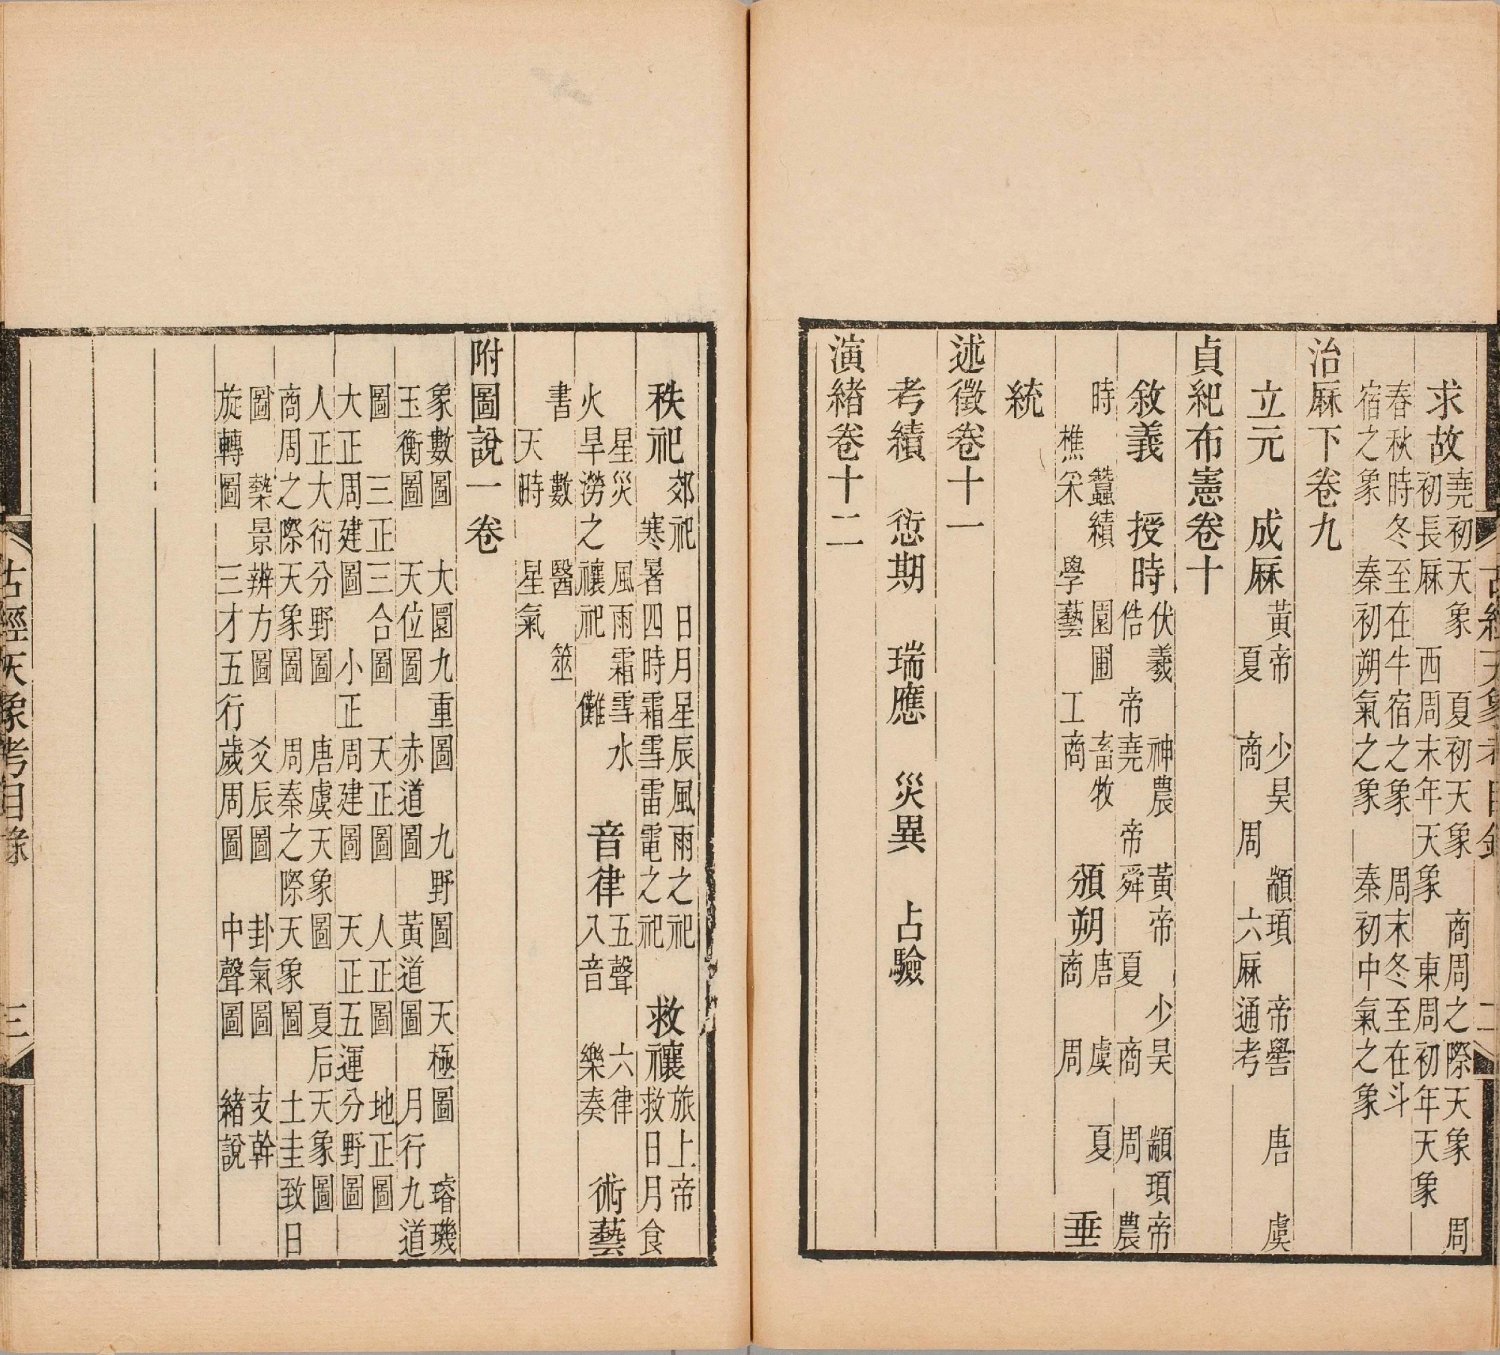 求故 堯初天象 夏初天象 商周之際天象 周
初長厤 西周末年天象 東周初年天象
春秋時冬至在牛宿之象 周末冬至在斗
宿之象 秦初朔氣之象 秦初中氣之象
治厤下卷九
立元 成厤 黃帝 少昊 顓頊 帝嚳 唐 虞
夏 商 周 六厤通考
貞紀布憲卷十
敘義 授時 伏羲 神農 黃帝 少昊 顓頊 帝
俈 帝堯 帝舜 夏 商 周 農
時 蠶績 園圃 畜牧 頒朔 唐 虞 夏 垂
樵采 學藝 工商 商 周
統
述徵卷十一
考績 愆期 瑞應 災異 占驗
演緒卷十二
古經天象考目錄 二
秩祀 郊祀 日月星辰風雨之祀 救禳 旅上帝
寒暑四時霜雪雷電之祀 救日月食
星災 風雨霜雪水 音律 五聲 六律 術藝
火旱澇之禳祀 儺 八音 樂奏
書 數 醫 筮
天時 星氣
附圖說一卷
象數圖 大圜九重圖 九野圖 天極圖 璿璣
玉衡圖 天位圖 赤道圖 黃道圖 月行九道
圖 三正三合圖 天正圖 人正圖 地正圖
大正周建圖 小正周建圖 天正五運分野圖
人正大衍分野圖 唐虞天象圖 夏后天象圖
商周之際天象圖 周秦之際天象圖 土圭致日
圖 槷景辨方圖 爻辰圖 卦氣圖 支幹
旋轉圖 三才五行歲周圖 中聲圖 緒說
古經天象考目錄 三